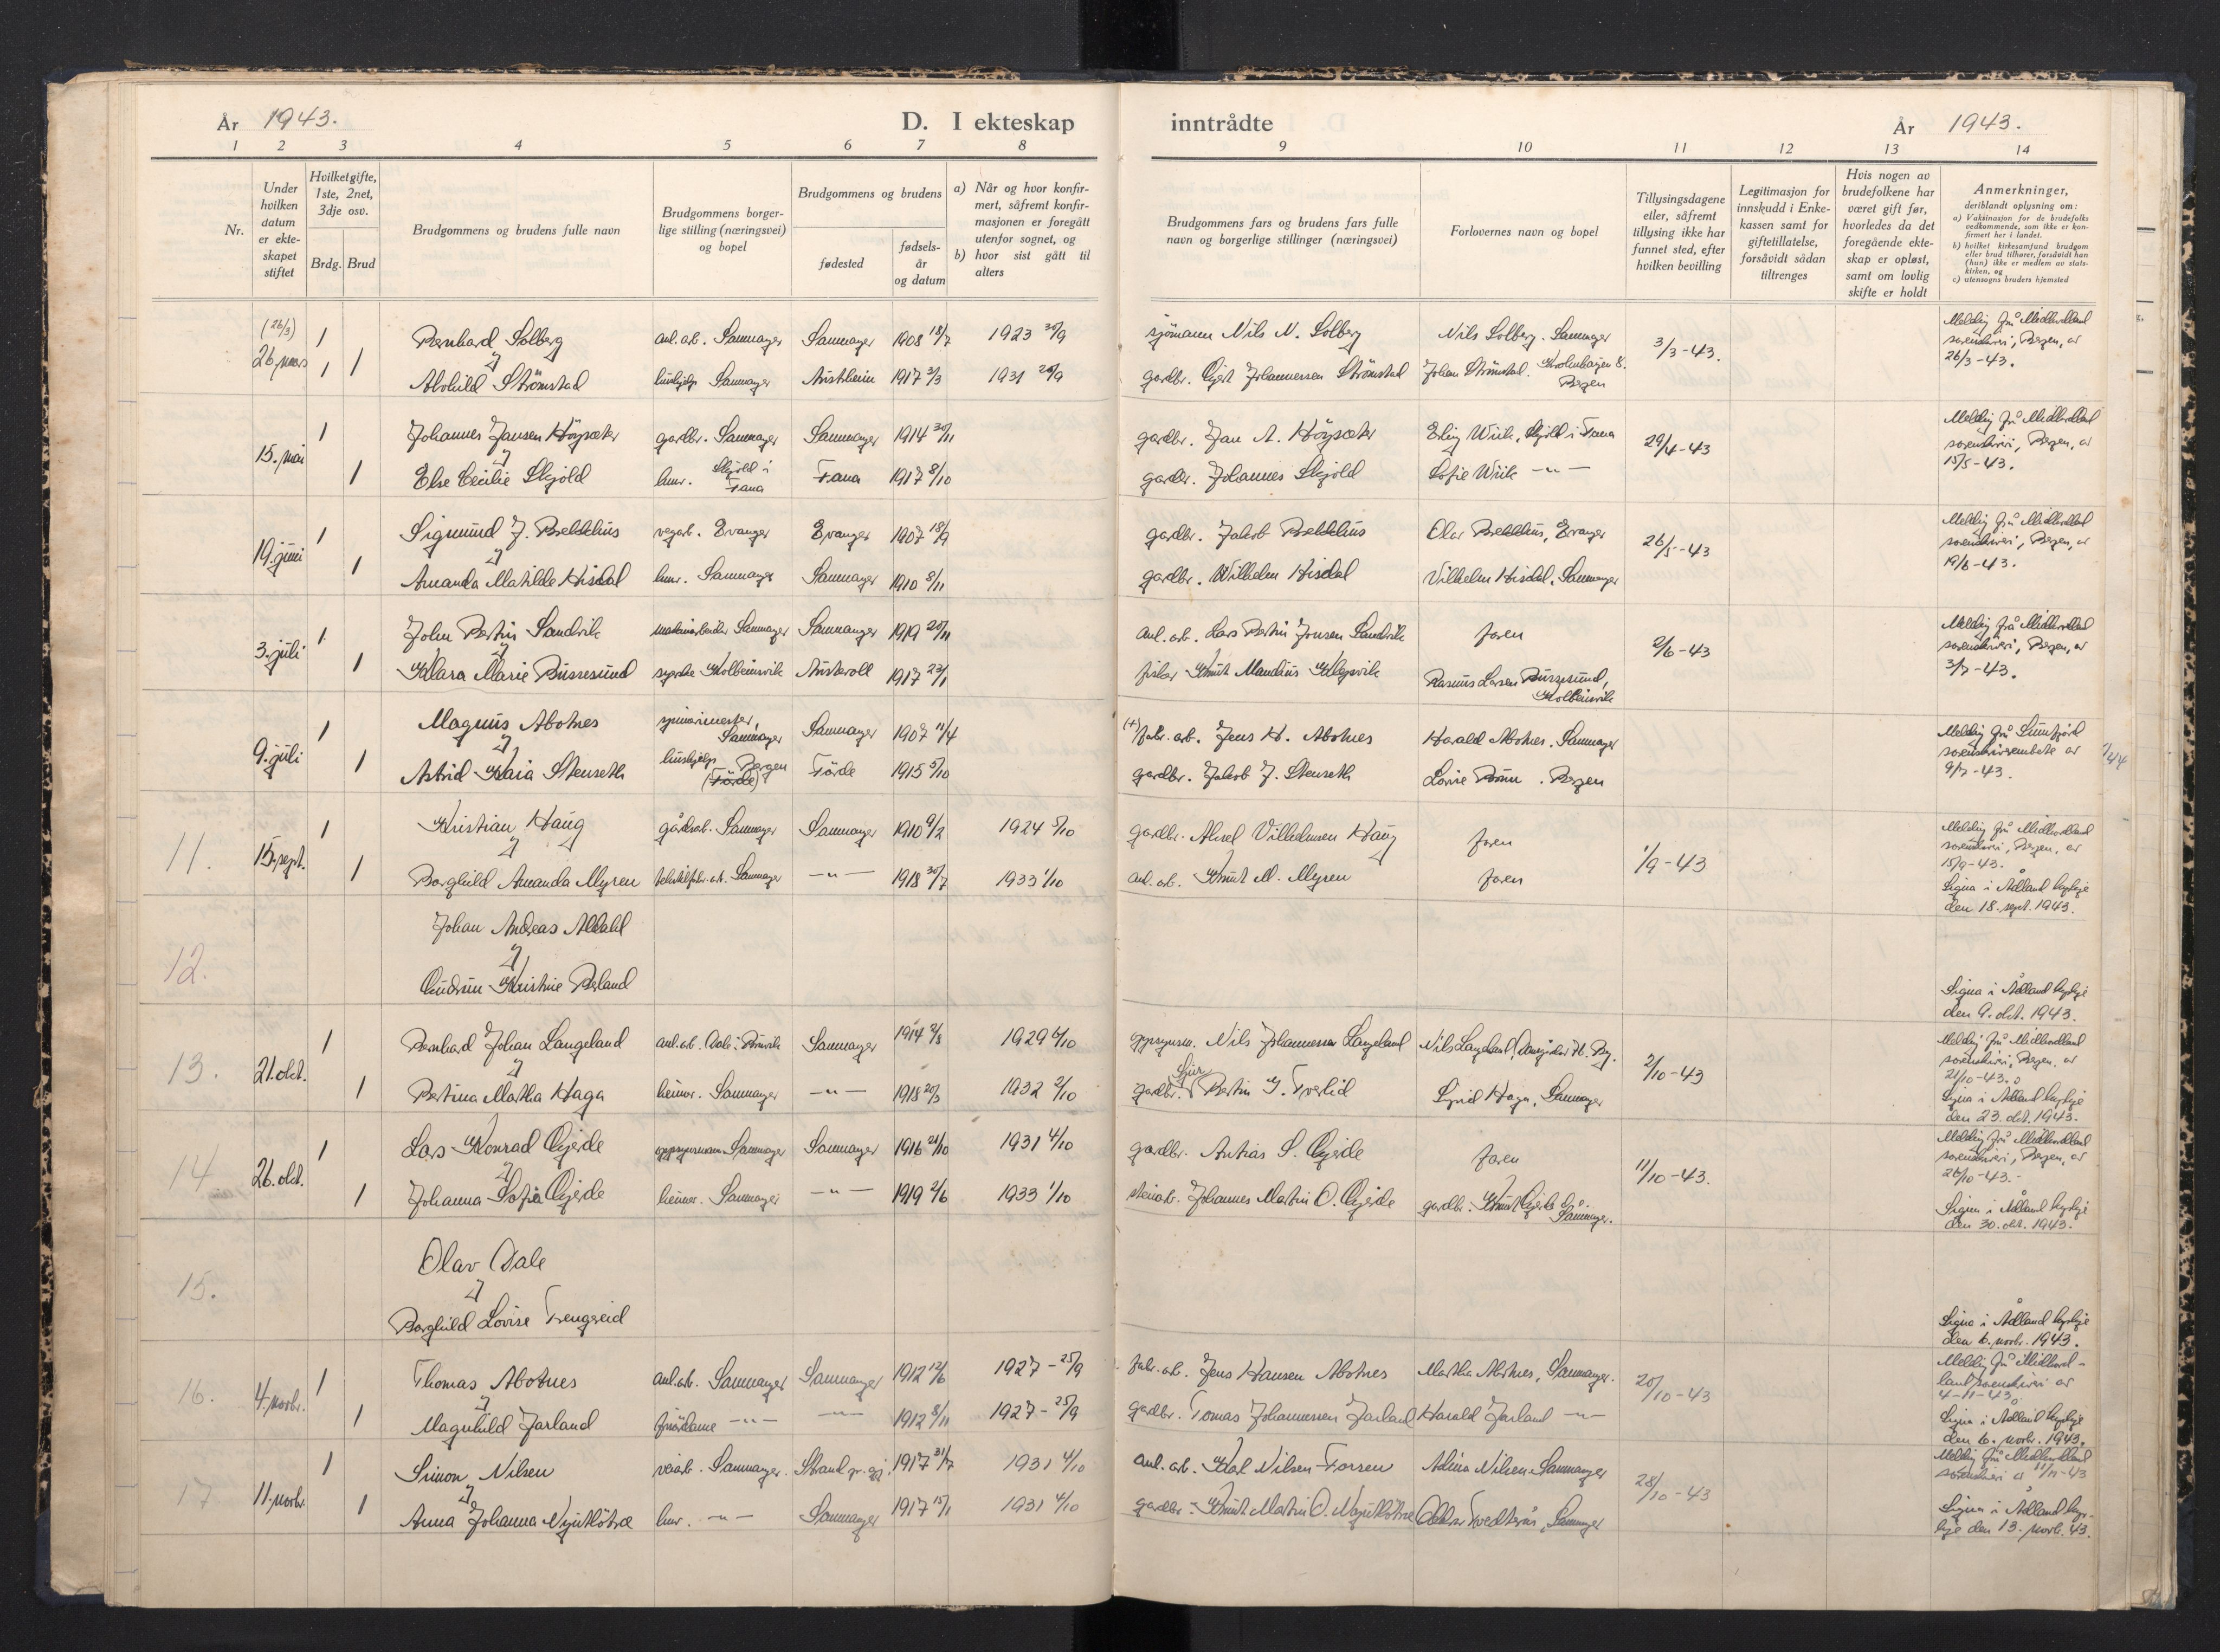 År 1943.
D. I ekteskap
inntrådte
År 1943.
1 2 3 4 5 6 7 8
9 10 11 12 13 14
Nr.
Under
hvilken
datum
er ekte-
skapet
stiftet
Hvilket gifte,
1ste, 2net,
3dje osv.
Brdg. Brud
Brudgommens og brudens fulle navn
Brudgommens borger-
lige stilling (næringsvei)
og bopel
Brudgommens og brudens
fødested
fødsels-
år
og datum
a) Når og hvor konfir-
mert, såfremt konfir-
masjonen er foregått
utenfor sognet, og
b) hvor sist gått til
alters
Brudgommens fars og brudens fars fulle
navn og borgerlige stillinger (næringsvei)
Forlovernes navn og bopel
Tillysingsdagene
eller, såfremt
tillysing ikke har
funnet sted, efter
hvilken bevilling
Legitimasjon for
innskudd i Enke-
kassen samt for
giftetillatelse,
forsåvidt sådan
tiltrenges
Hvis nogen av
brudefolkene har
været gift før,
hvorledes da det
foregående ekte-
skap er opløst,
samt om lovlig
skifte er holdt
Anmerkninger,
deriblandt oplysning om:
a) Vaksinasjon for de brudefolks
vedkommende, som ikke er kon-
firmert her i landet.
b) hvilket kirkesamfund brudgom
eller brud tilhører, forsåvidt han
(hun) ikke er medlem av stats-
kirken, og
c) utensogns bruders hjemsted
(26/3)
26. mars 1 Bernhard Solberg anl.arb. Samnanger Samnanger 1908 18/7 1923 30/9 sjömann Nils N. Solberg Nils Solberg. Samnanger 3/3-43.
1 1 Alvhild Strömstad hushjelp Samnanger Austrheim 1917 3/3 1931 gardbr. Gjert Johannessen Strömstad Johan Strömstad. Bergen
Melding frå Midhordland
sorenskriveri, Bergen, av
26/3-43.
15. mai 1 Johannes Jansen Höysæter gardbr. Samnanger Samnanger 1914 30/11 gardbr. Jan A. Höysæter Erling Wiik, Skjold i Fana 29/4-43
1 Else Cecilie Skjold husv. Skjold i Fana Fana 1917 8/10 gardbr. Johannes Skjold Sofie Wiik -"-
Melding frå Midhordland
sorenskriveri, Bergen, av
15/5-43.
19. juni 1 Sigmund J. vegarb. Evanger Evanger 1907 18/9 gardbr. Jakob Olav Evanger 26/5-43
1 Amanda Matilde Hisdal husv. Samnanger Samnanger 1910 8/11 gardbr. Wilhelm Hisdal Vilhelm Hisdal, Samnanger
Melding frå Midhordland
sorenskriveri, Bergen, av
19/6-43.
3. juli 1 John Bertin Sandvik Samnanger Samnanger 1919 20/11 anl.arb. Lars Bertin Jonsen Sandvik faren 2/6-43
1 Klara Marie Bussesund syerske Kolbeinsvik Austevoll 1917 23/1 fisker Knut Mandius Klepsvik Rasmus Larsen Bussesund,
Kolbeinsvik
Melding frå Midhordland
sorenskriveri, Bergen, av
3/7-43.
9. juli 1 Magnus Abotnes spinnerimester, Samnanger Samnanger 1907 11/4 (+) fabr.arb. Jens H. Abotnes Harald Abotnes. Samnanger
1 Astrid Kaia Stenseth hushjelp Bergen (Förde) Förde 1915 5/10 gardbr. Jakob J. Stenseth Lovise Bergen
Melding frå Sunnfjord
sorenskrivarembete av
9/7-43.
11. 15. sept. 1 Kristian Haug gårdsarb. Samnanger Samnanger 1910 9/2 1924 5/10 gardbr. Aksel Vilhelmsen Haug faren 1/9-43
1 Borghild Amanda Myren Samnanger -"- 1918 30/7 1933 1/10 anl.arb. Knut M. Myren faren
Melding frå Midhordland
sorenskriveri, Bergen, av
15/9-43.
Signa i Ådland kyrkje
den 18. sept. 1943.
12. Johan Andreas
Gudrun Kristine
Signa i Ådland kyrkje
den 9. okt. 1943.
13. 21. okt. 1 Bernhard Johan Langeland anl.arb. Samnanger 1914 2/8 1929 6/10 Nils Johannessen Langeland Nils Langeland, 2/10-43
1 Bertina Martha Haga heimev. Samnanger -"- 1918 20/3 1932 2/10 gardbr. Sjur Bertin G. Tveitlid Haga, Samnanger
Melding frå Midhordland
sorenskriveri, Bergen, av
21/10-43.
Signa i Ådland kyrkje
den 23. okt. 1943.
14 26. okt. 1 Lars Konrad Gjerde Samnanger Samnanger 1916 21/10 1931 4/10 gardbr. Antias S. Gjerde faren 11/10-43.
1 Johanna Sofia Gjerde heimev. Samnanger -"- 1919 2/6 1933 1/10 steinarb. Johannes Martin O. Gjerde gardbr. Knut Gjerde Samnanger.
Melding frå Midhordland
sorenskriveri, Bergen, av
26/10-43.-
Signa i Ådland kyrkje
den 30. okt. 1943.
15. Olav Dale
Borghild Lovise Tengereid
Signa i Ådland kyrkje
den 6. novbr. 1943.
16. 4. novbr. 1 Thomas Abotnes anl.arb. Samnanger Samnanger 1912 12/6 1927-25/9 fabr.arb. Jens Hansen Abotnes Martha Abotnes, Samnanger. 20/10-43
1 Magnhild Jarland -"- -"- 1912 8/11 1927-25/9 gardbr. Tomas Johannessen Jarland Harald Jarland -"-
Melding frå Midhord-
land sorenskriveri av
4-11-43
Signa i Ådland kyrkje
den 6. novbr. 1943.
17 11. novbr. 1 Simon Nilsen veiarb. Samnanger. Strand 1917 31/7 1931 4/10 anl.arb. Nilsen-Forsen Adina Nilsen Samnanger 28/10-43
1 Anna Johanna husv. -"- Samnanger 1917 15/1 1931 4/10 gardbr. Knut Martin O. Samnanger
Melding frå Midhordland
sorenskriveri av 11/11-43
Signa i Ådland kyr-
kje den 13. novb. 43.